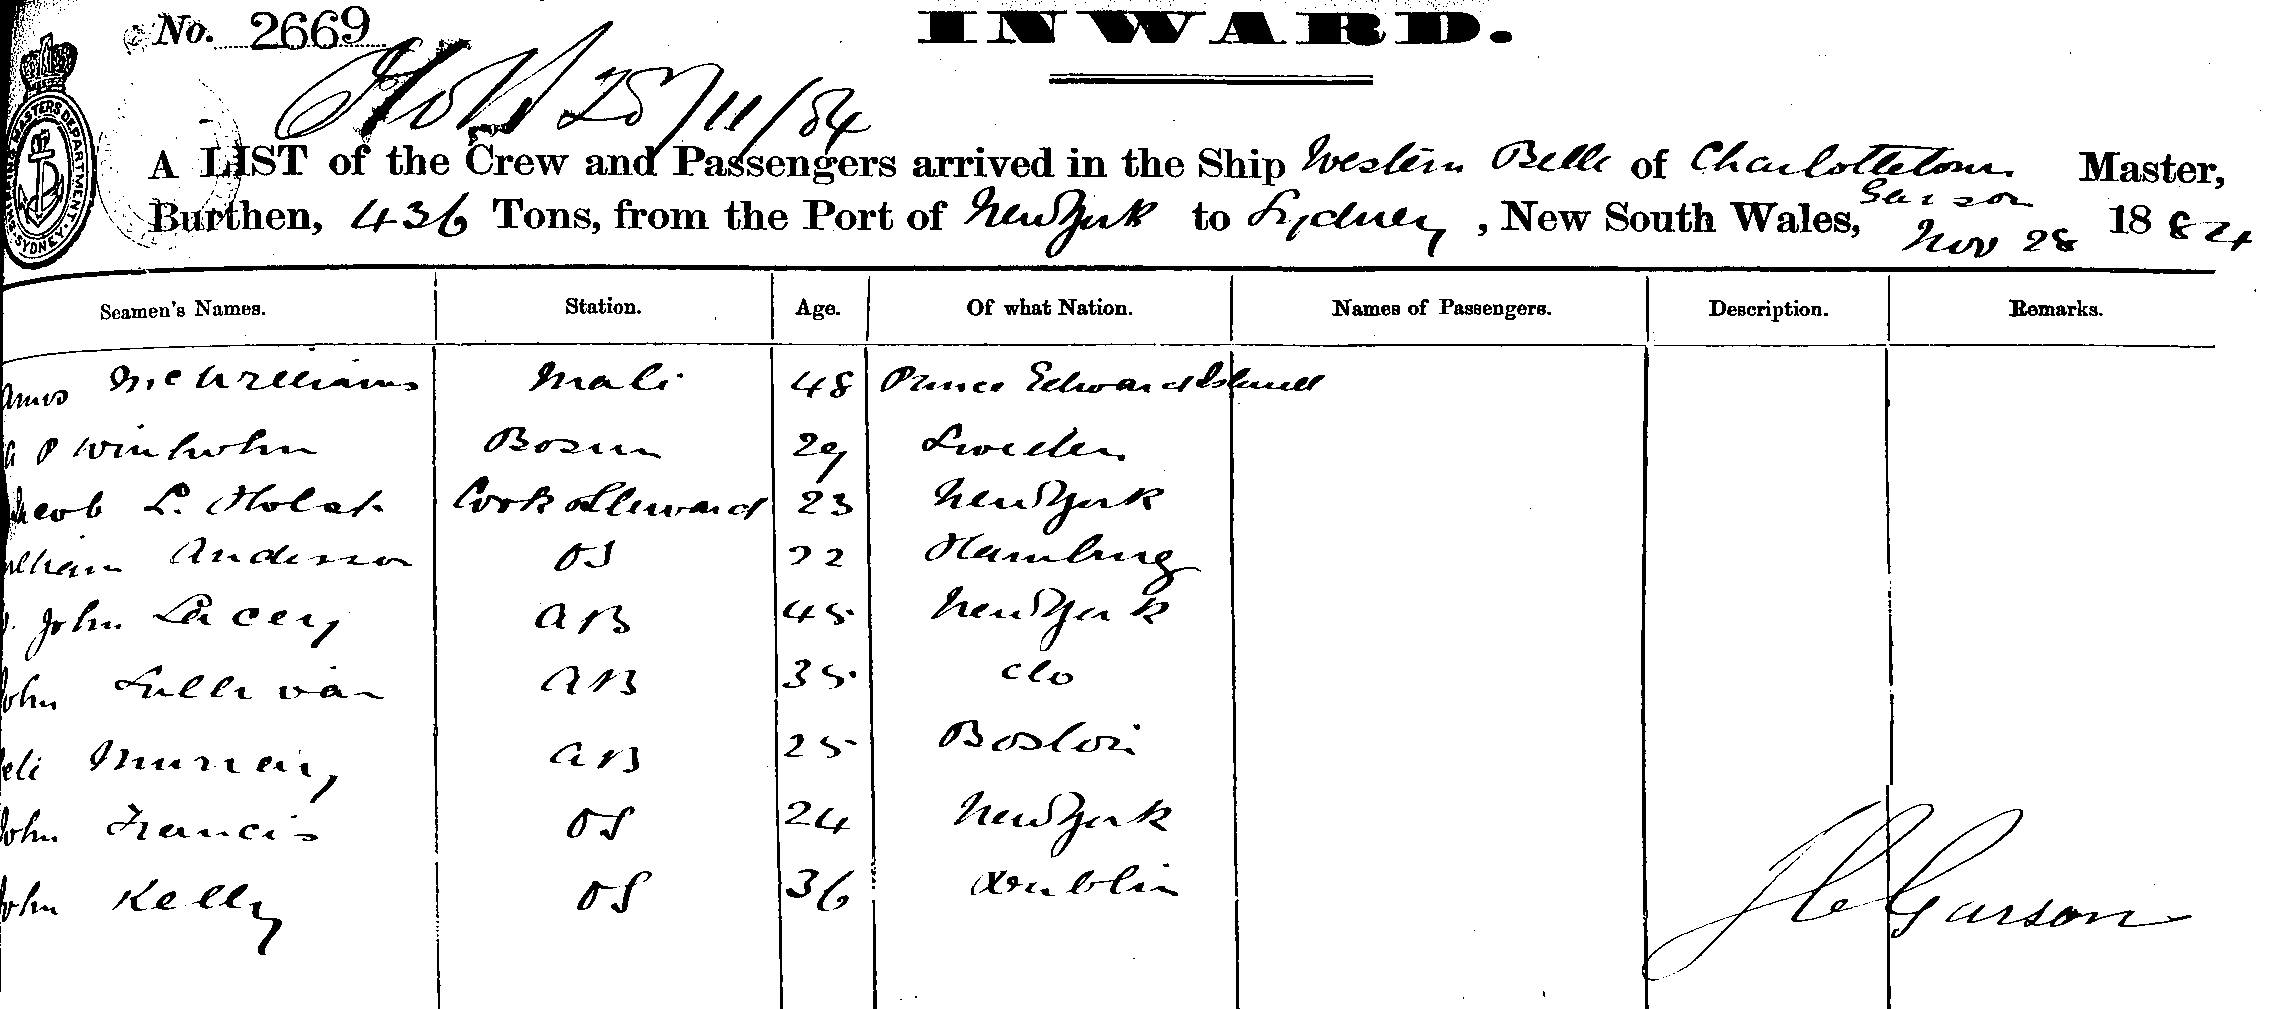 No. 2669
INWARD.
25/11/84
A LIST of the Crew and Passengers arrived in the Ship Western Belle of Charlottetown Master,
Garson
Burthen, 436 Tons, from the Port of New York to Sydney, New South Wales, Nov 28 1884
Seamen's Names. Station. Age. Of what Nation. Names of Passengers. Description. Remarks.
McWilliams Mate 48 Prince Edward Island
P 29 Sweden Bosun
Jacob L. Holst Cook & Steward 23 New York
William Anderson OS 22 Hamburg
John Lacey AB 45 New York
John Sullivan AB 35 do
Murray AB 25 Boston
John Francis OS 24 New York
John Kelly OS 36 Dublin
Garson